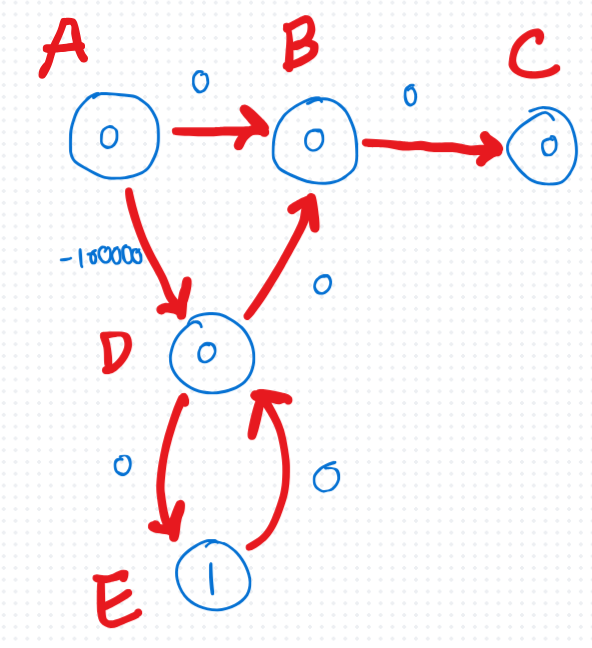 A B C
0 0
0 0 0
-100000
0
D 0
0 0
E 1